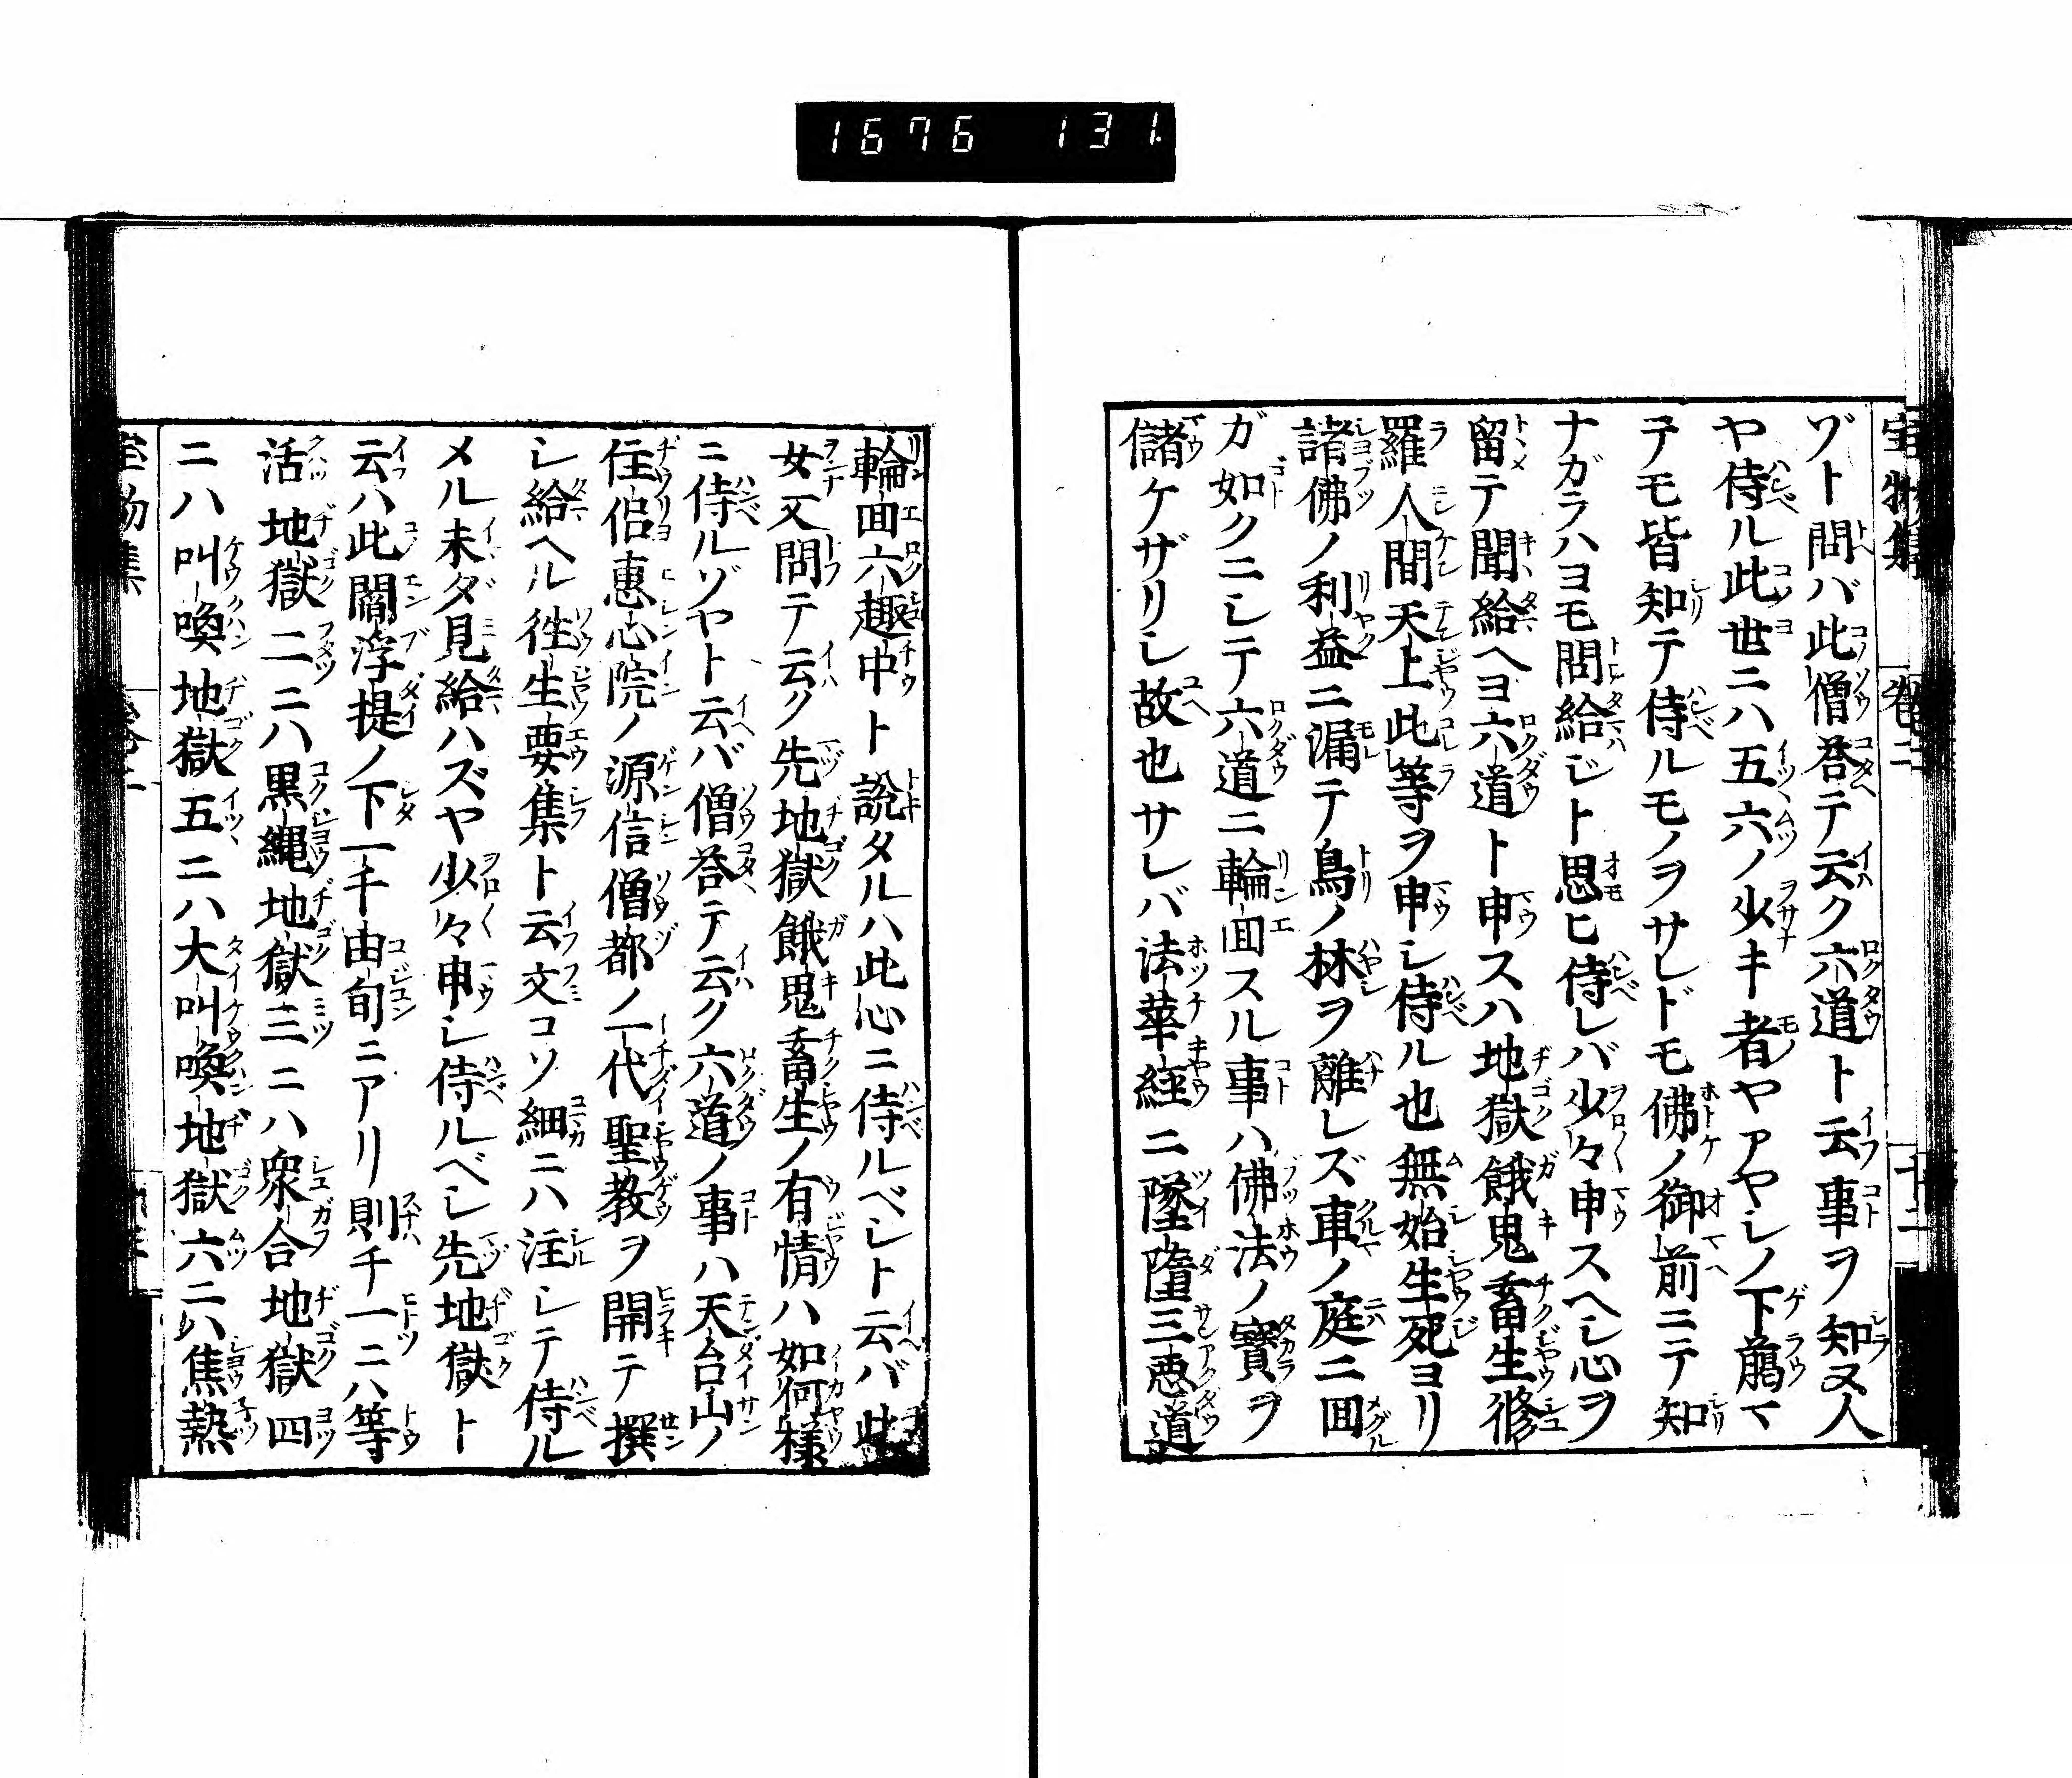 1676 131
宝物集 巻二 十二
ヅト問バ此僧荅テ云ク六道ト云事ヲ知ヌ人
ヤ侍ル此世ニハ五六ノ少キ者ヤアヤシノ下﨟マ
テモ皆知テ侍ルモノヲサレドモ佛ノ御前ニテ知
ナガラハヨモ問給ジト思ヒ侍レバ少々申スヘシ心ヲ
留テ聞給ヘヨ六道ト申スハ地獄餓鬼畜生修
羅人間天上此等ヲ申シ侍ル也無始生死ヨリ
諸佛ノ利益ニ漏テ鳥ノ林ヲ離レズ車ノ庭ニ回
ガ如クニシテ六道ニ輪回スル事ハ佛法ノ寶ヲ
儲ケザリシ故也サレバ法華経ニ墜墮三悪道
輪回六趣中ト說タルハ此心ニ侍ルベシト云バ此
女又問テ云ク先地獄餓鬼畜生ノ有情ハ如何様
ニ侍ルゾヤト云バ僧荅テ云ク六道ノ事ハ天台山ノ
住侶惠心院ノ源信僧都ノ一代聖教ヲ開テ撰
シ給ヘル徃生要集ト云文コソ細ニハ注シテ侍ル
メル未ダ見給ハズヤ少々申シ侍ルベシ先地獄ト
云ハ此閻浮提ノ下一千由旬ニアリ則千一ニハ等
活地獄二ニハ黒縄地獄三ニハ衆合地獄四
ニハ叫喚地獄五ニハ大叫喚地獄六ニハ焦熱